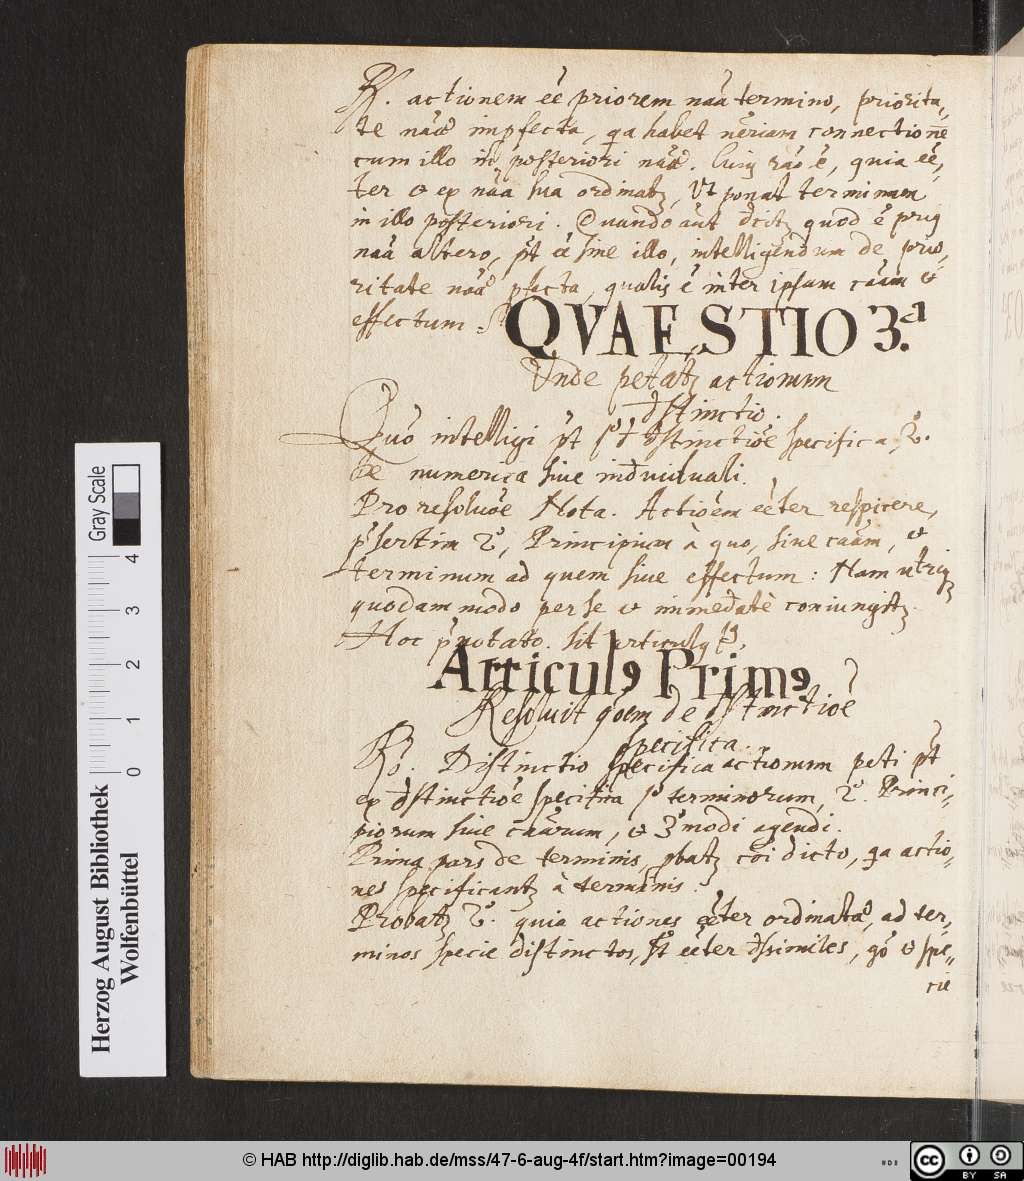 R. actionem eē priorem naā termino, priorita„
te naāe impfecta, qa habet neriam connectionē
cum illo in posteriori naā. Cuiq rāo ē, quia eē„
ter et ex naā sua ordinatz, Vt ponat terminum
in illo posteriori. Quando aūt dr̄citz quod ē priq
naā altero, pt eē sine illo, intelligendum de prio„
ritate naāe pfecta, qualis ē inter ipsam caām et
effectum.
QVAESTIO 3.a
Vnde petatz actionum
dstinctio.
Quō intelligi pt 1º de dstinctiōe specifica, 2º.
de numerica siue indiuiduali.
Pro resoluōe Nota. Actiōem eēter respicere,
psertim 2º, Principium à quo, siue caām, et
terminum ad quem siue effectum: Nam utriqz
quodammodo per se et immedatè coniungitz.
Hoc pnotato. sit articulq 1q.
Articul9 Prim9
Resoluit qōem de dstinctiōe
specifica.
Ro. Distinctio specifica actionum peti pt
ex dstinctiōe specifica 1º terminorum, 2º. Princi„
piorum siue caārum, et 3º modi agendi.
Prima pars de terminis, pbatz cōi dicto, qa actio„
nes specificantz à terminis.
Probatz 2º. quia actiones eēter ordinatae, ad ter„
minos specie distinctos, st eēter dssimiles, gō et spe„
cie
Herzog August Bibliothek
Wolfenbüttel
Gray Scale
0 1 2 3 4
© HAB http://diglib.hab.de/mss/47-6-aug-4f/start.htm?image=00194
cc BY SA